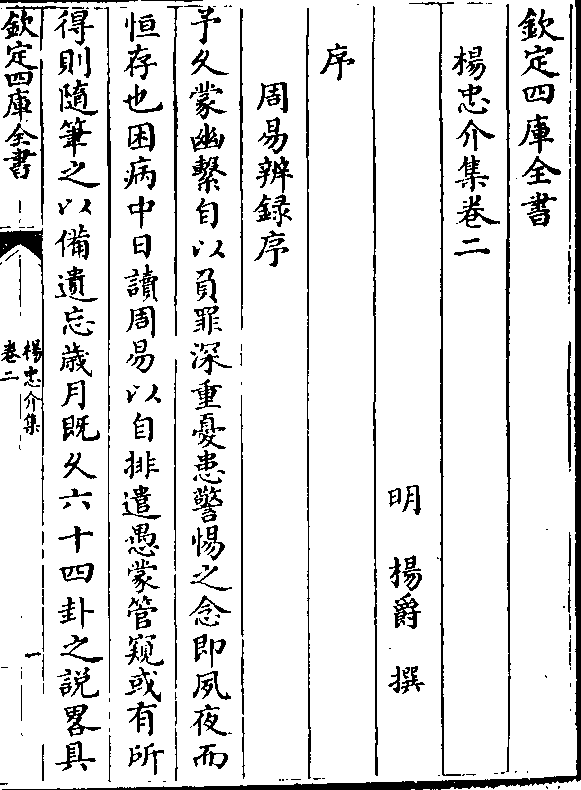 欽定四庫全書
楊忠介集卷二
明　楊爵　撰
序
周易辨録序
予久蒙幽繫自以負罪深重憂患警惕之念即夙夜而
恒存也困病中日讀周易以自排遣愚蒙管窺或有所
得則隨筆之以備遺忘歳月既久六十四卦之説畧具
欽定四庫全書
楊忠介集
卷二
一